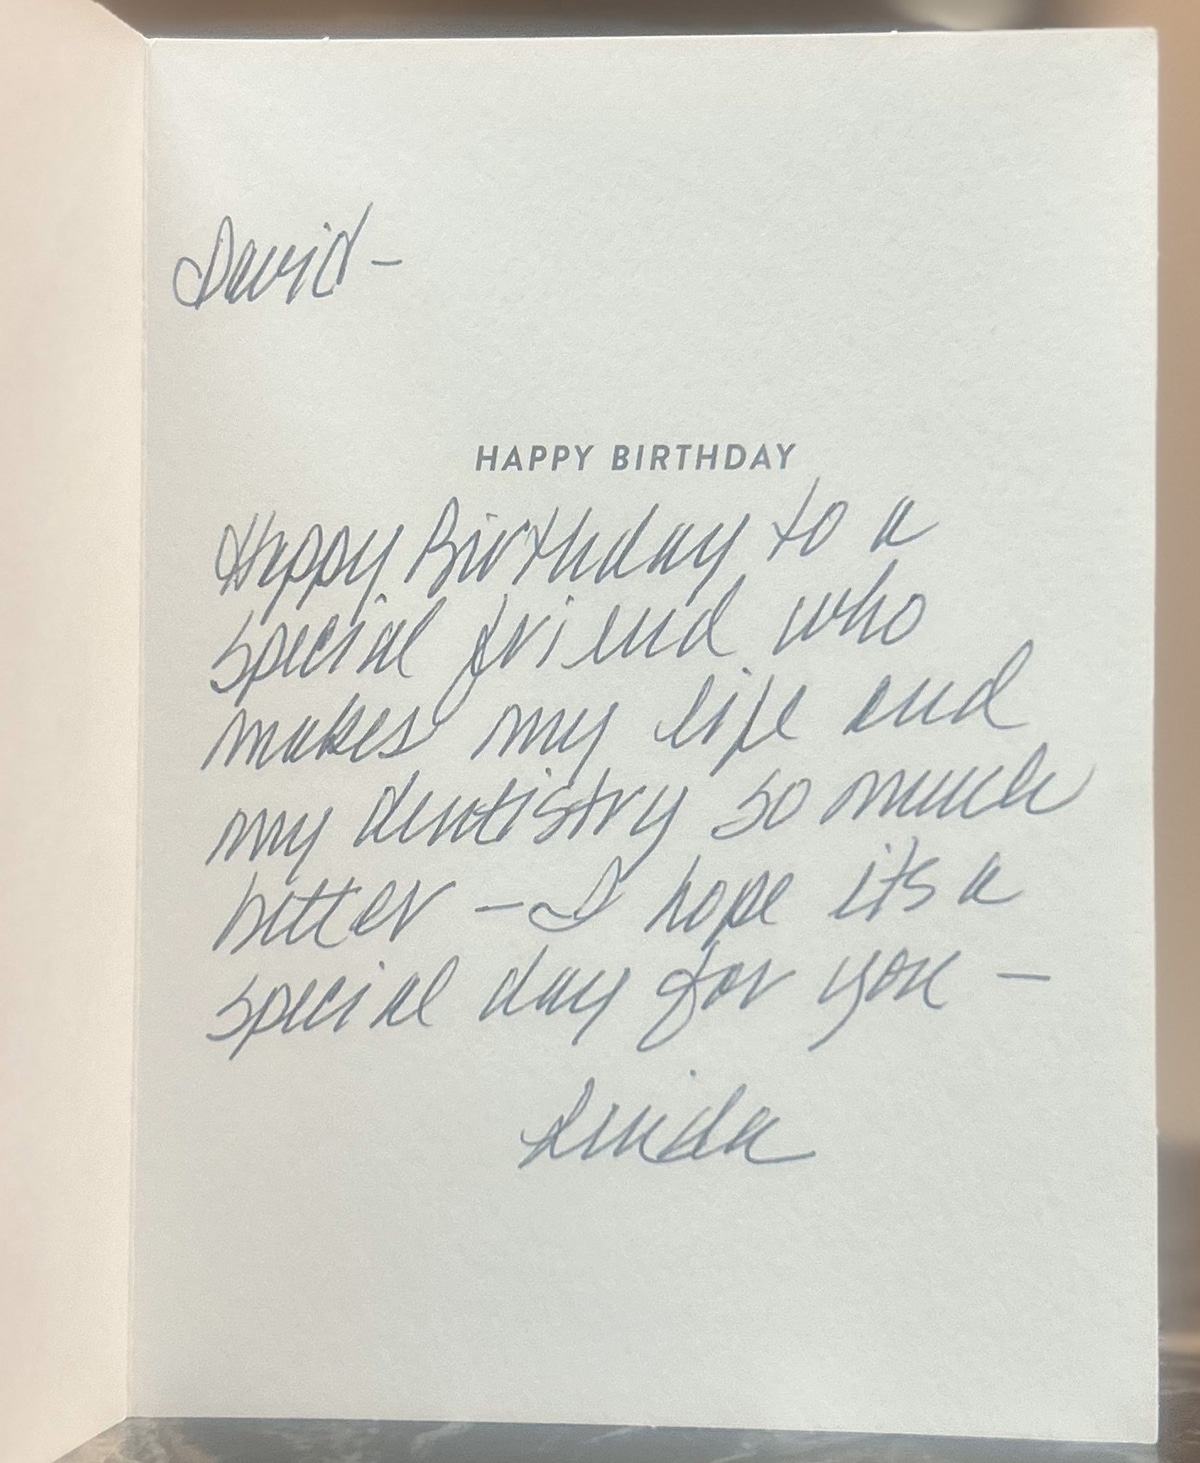 David -
HAPPY BIRTHDAY
Happy Birthday to a
special friend who
makes my life and
my dentistry so much
better - I hope its a
special day for you -
Linda